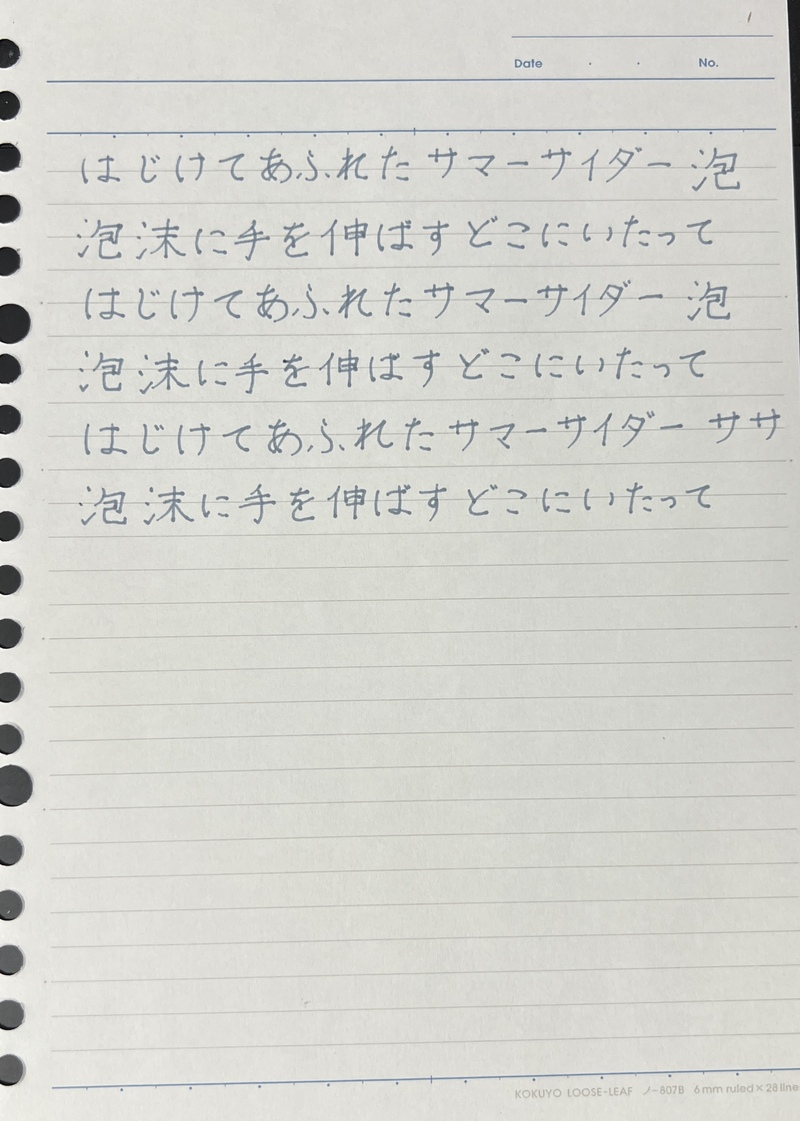 Date . . No.
はじけてあふれたサマーサイダー 泡
泡沫に手を伸ばすどこにいたって
はじけてあふれたサマーサイダー 泡
泡沫に手を伸ばすどこにいたって
はじけてあふれたサマーサイダー ササ
泡沫に手を伸ばすどこにいたって
KOKUYO LOOSE-LEAF ノ-807B 6mm ruled×28 line